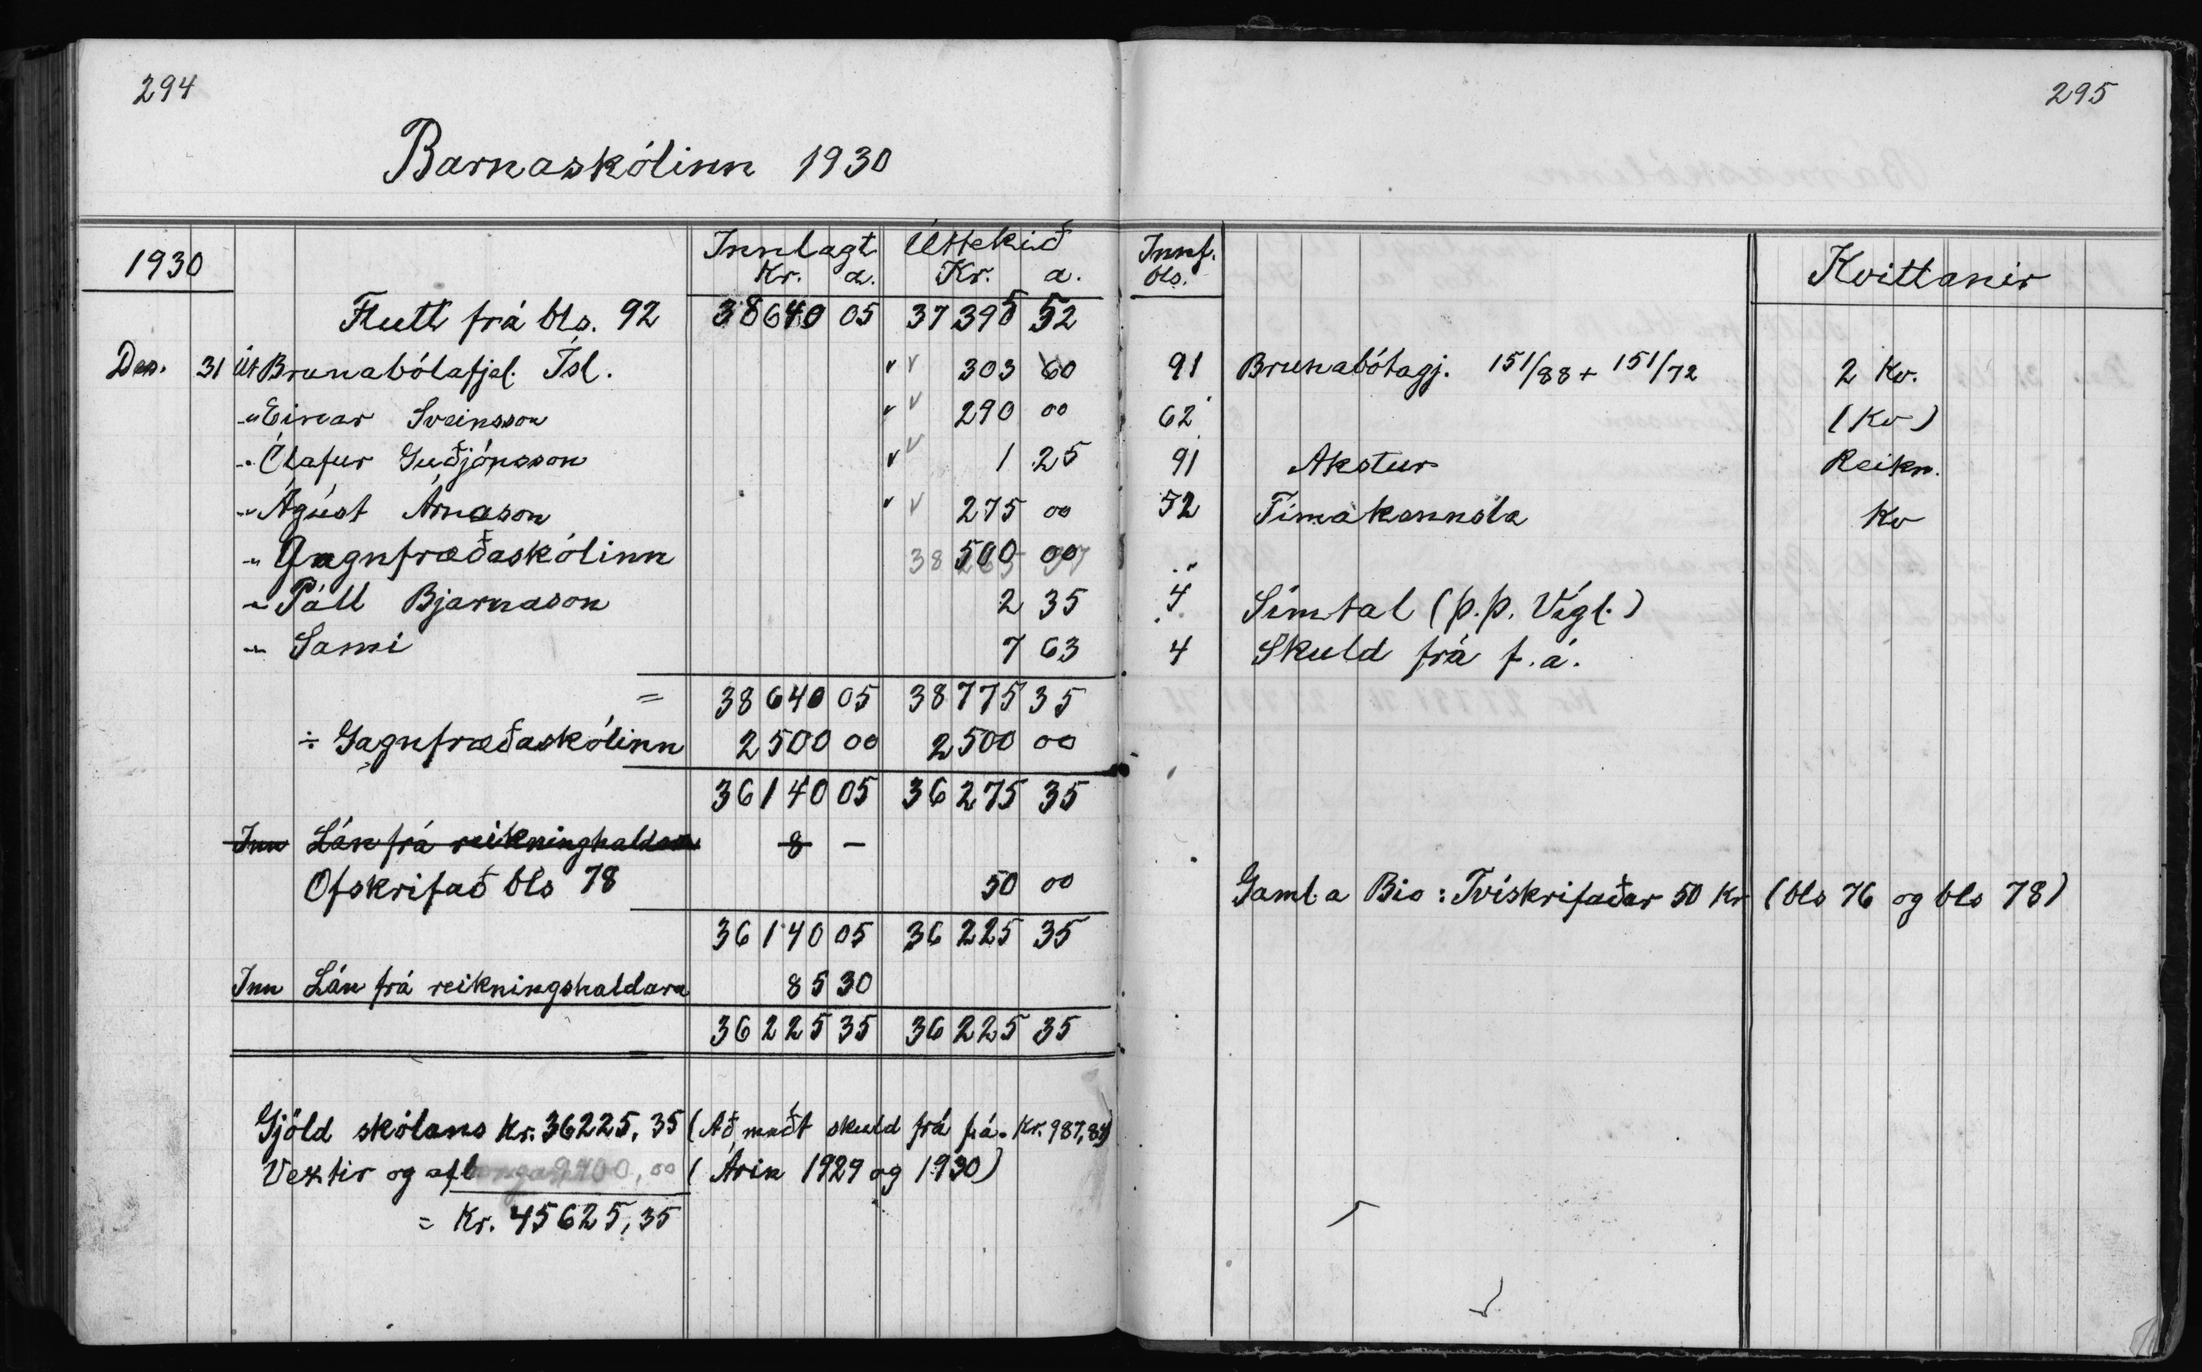 294
Barnaskólinn 1930
1930 Innlagt Kr. a. Úttekið Kr. a.
Flutt frá bls. 92 38640 05 37395 52
Des. 31 Út Brunabótafjel. Ísl. 303 60
-"- Einar Sveinsson 290 00
-"- Ólafur Guðjónsson 1 25
-"- Ágúst Árnason 275 00
-"- Gagnfræðaskólinn 500 00
-"- Páll Bjarnason 2 35
-"- Sami 7 63
= 38640 05 38775 35
÷ Gagnfræðaskólinn 2500 00 2500 00
36140 05 36275 35
Inn Lán frá reikninghaldara 8 —
Ofskrifað bls 78 50 00
36140 05 36225 35
Inn Lán frá reikningshaldara 85 30
36225 35 36225 35
Gjöld skólans Kr. 36225,35 (Að meðt skuld frá f.á. Kr. 987,84)
Vextir og afborganir 9400,00 (Árin 1929 og 1930)
= Kr. 45625,35
295
Innf. bls. Kvittanir
91 Brunabótagj. 151/88 + 151/72 2 Kv.
62 (Kv)
91 Akstur Reikn.
52 Tímakennsla Kv
4 Símtal (Þ.Þ. Vígl.)
4 Skuld frá f.á.
Gamla Bio: Tvískrifaðar 50 Kr (bls 76 og bls 78)